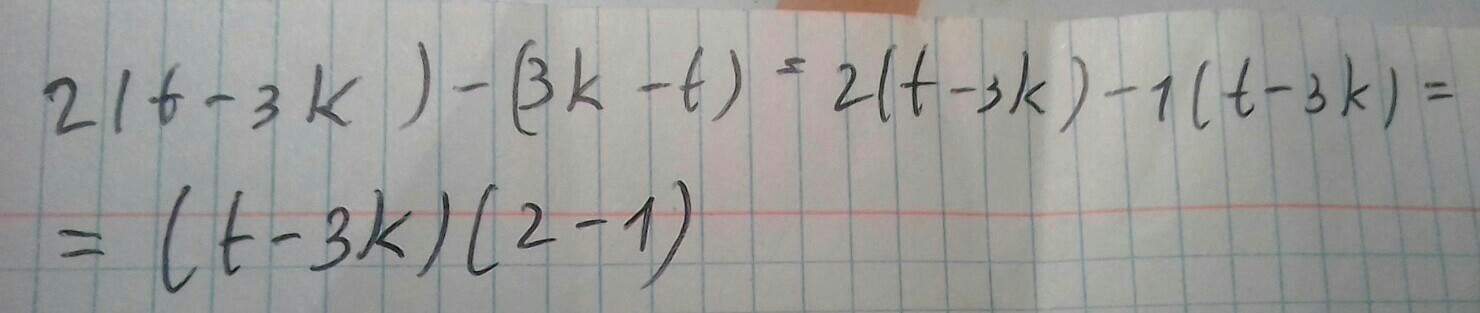 2(t-3k)-(3k-t)=2(t-3k)-1(t-3k)=
=(t-3k)(2-1)